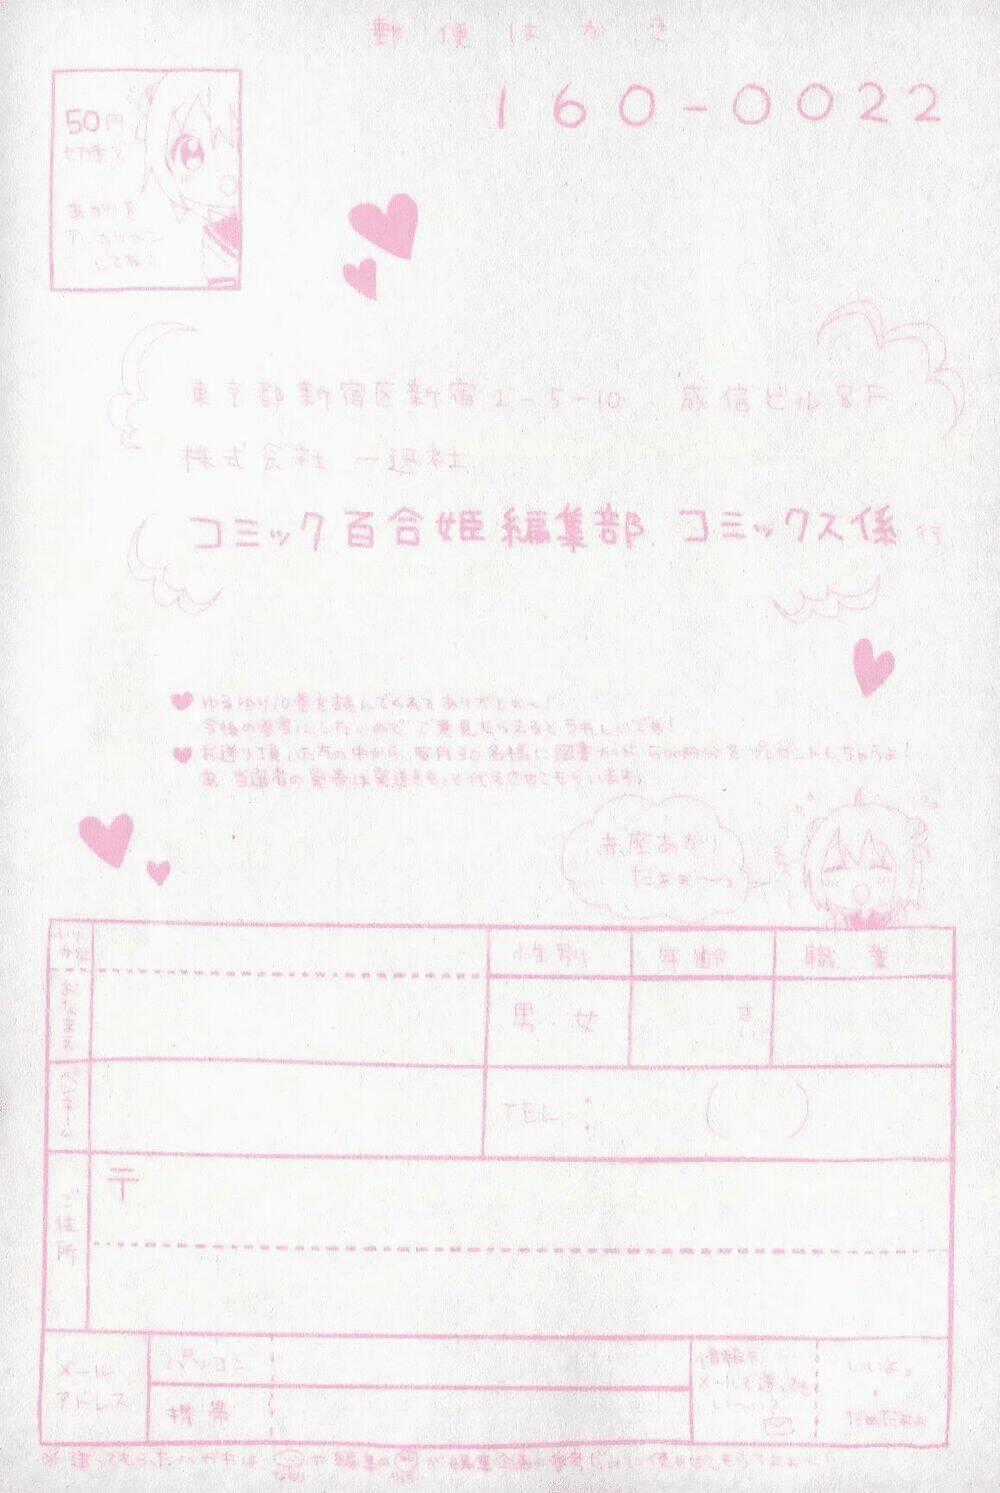 郵便はがき
160-0022
50円
切手を
あかりを
アッカリ〜ン
してね♡
東京都新宿区新宿2-5-10 成信ビル8F
株式会社 一迅社
コミック百合姫編集部 コミックス係 行
ゆるゆり10巻を読んでくれてありがとね〜!
今後の参考にしたいので ご意見もらえるとうれしいです!
お送り頂いた方の中から、毎月30名様に図書カード500円分をプレゼントしちゃうよ!
尚、当選者の発表は発送をもって代えさせてもらいます。
赤座あかり
だよぉ〜っ
ふりがな
おなまえ
性別
年齢
職業
男 女
さい
ペンネーム
TEL : ( )
ご住所
〒
メール
アドレス
パソコン
携帯
情報を
メールで送っても
い〜い?
いいよ。
・
だめだよぉ
※送ってもらったハガキは